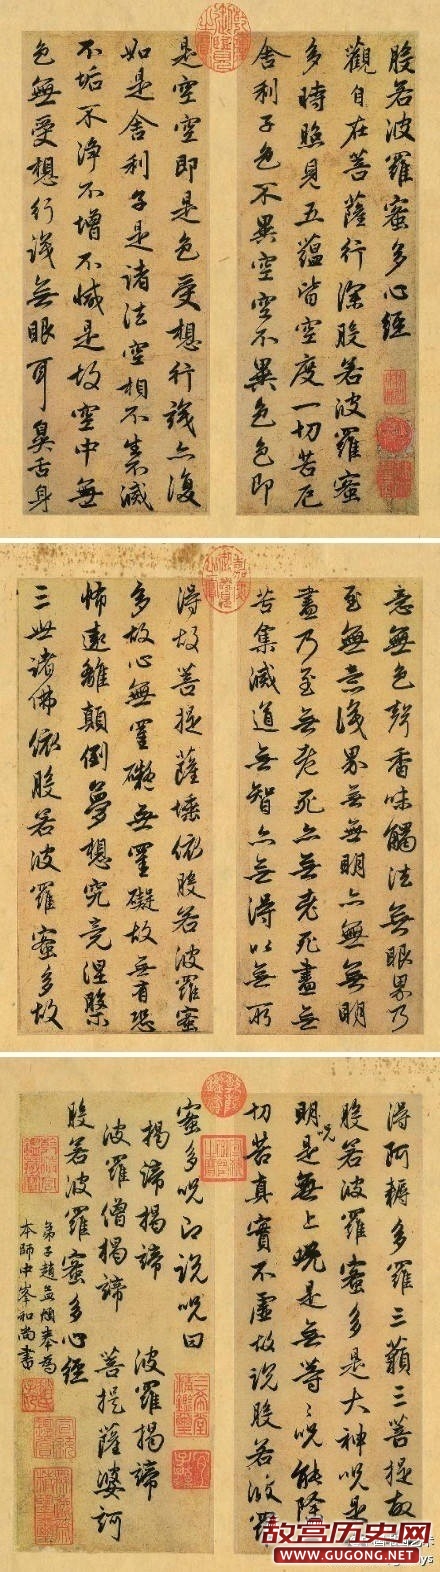 般若波羅蜜多心經
觀自在菩薩行深般若波羅蜜
多時照見五蘊皆空度一切苦厄
舍利子色不異空空不異色色即
是空空即是色受想行識亦復
如是舍利子是諸法空相不生不滅
不垢不淨不增不減是故空中無
色無受想行識無眼耳鼻舌身
意無色聲香味觸法無眼界乃
至無意識界無無明亦無無明
盡乃至無老死亦無老死盡無
苦集滅道無智亦無得以無所
得故菩提薩埵依般若波羅蜜
多故心無罣礙無罣礙故無有恐
怖遠離顛倒夢想究竟涅槃
三世諸佛依般若波羅蜜多故
得阿耨多羅三藐三菩提故
般若波羅蜜多是大神咒是
明咒是無上咒是無等〻咒能除
切苦真實不虛故說般若波羅
蜜多咒即說咒曰
揭諦揭諦 波羅揭諦
波羅僧揭諦 菩提薩婆訶
般若波羅蜜多心經
弟子趙孟頫奉為
本師中峯和尚書
故宫历史网
www.GUGONG.NET